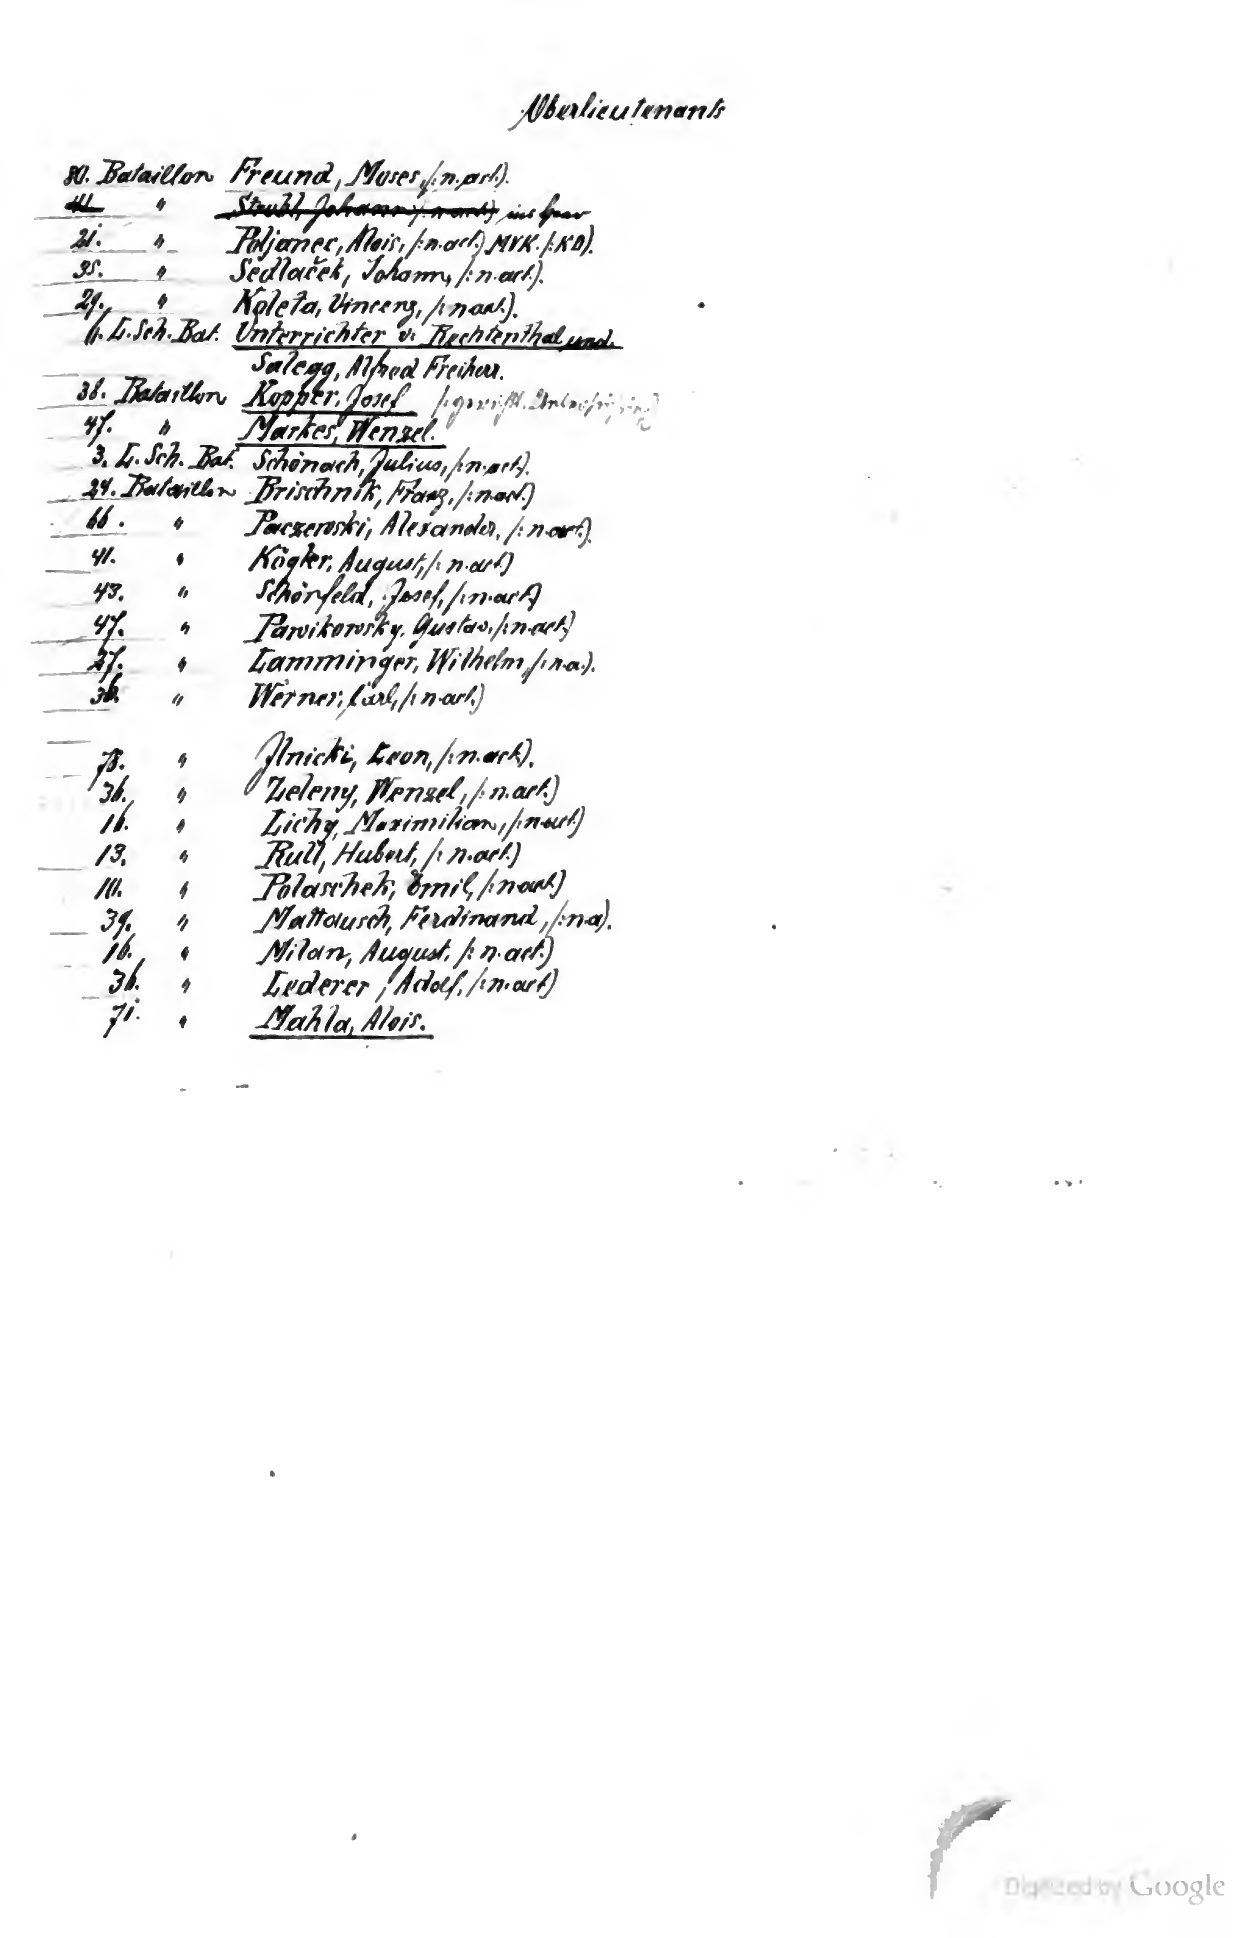 Oberlieutenants
80. Bataillon Freund, Moses, /: n. act.).
41 " Strubl, Johann /: n. act.)
21. " Poljanec, Alois, /: n. act.) MVK. /: KD).
35. " Sedlaček, Johann, /: n. act.).
29. " Koleta, Vincenz, /: n act.).
6. L. Sch. Bat. Unterrichter v. Rechtenthal und
Salegg, Alfred Freiherr.
38. Bataillon Kopper, Josef
47. " Markes, Wenzel.
3. L. Sch. Bat. Schönach, Julius, /: n. act.).
24. Bataillon Brischnik, Franz, /: n. act.)
66. " Paczewski, Alexander, /: n. act.).
41. " Kögler, August, /: n. act.)
43. " Schönfeld, Josef, /: n. act.)
47. " Pawikowsky, Gustav, /: n. act.)
27. " Lamminger, Wilhelm, /: n. a.).
36. " Werner, Carl, /: n. act.)
78. " Jlnicki, Leon, /: n. act.).
36. " Zeleny, Wenzel, /: n. act.)
16. " Lichy, Maximilian, /: n. act.)
13. " Rull, Hubert, /: n. act.)
10. " Polaschek, Emil, /: n act.)
39. " Mattausch, Ferdinand, /: n. a).
16. " Milan, August, /: n. act.)
36. " Lederer, Adolf, /: n. act.)
71. " Mahla, Alois.
Digitized by Google